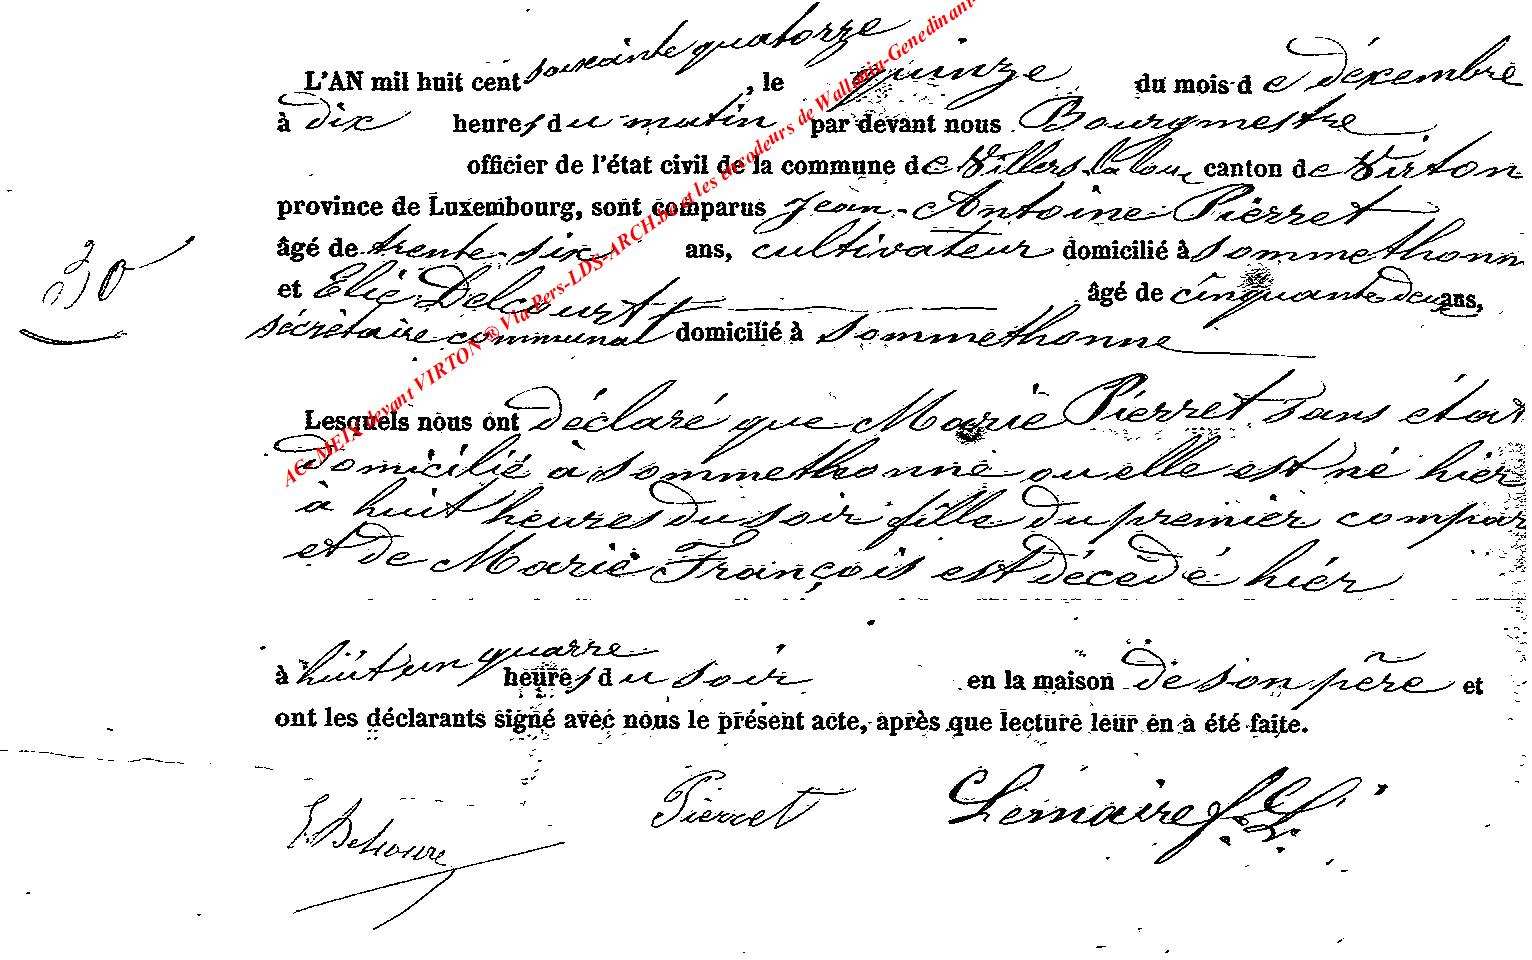 soixante quatorze
L'AN mil huit cent , le quinze du mois de décembre
à dix heures du matin par devant nous Bourgmestre
officier de l'état civil de la commune de Villers la loue canton de Virton
province de Luxembourg, sont comparus Jean-Antoine Pierret
âgé de trente-six ans, cultivateur domicilié à Sommethonn
30
et Elie Delcourt âgé de cinquante deux ans,
sécrètaire communal domicilié à Sommethonne
Lesquels nous ont déclaré que Marie Pierret sans état
domicilié à Sommethonne ou elle est né hier
à huit heures du soir fille du premier compar
et de Marie François est décedé hier
à huit un quarre heures du soir en la maison de son père et
ont les déclarants signé avec nous le présent acte, après que lecture leur en a été faite.
Pierret Lemaire
AC-METX devant VIRTON ® Via Pers-LDS-ARCH.be et les décodeurs de Wallonia-Genedinant-